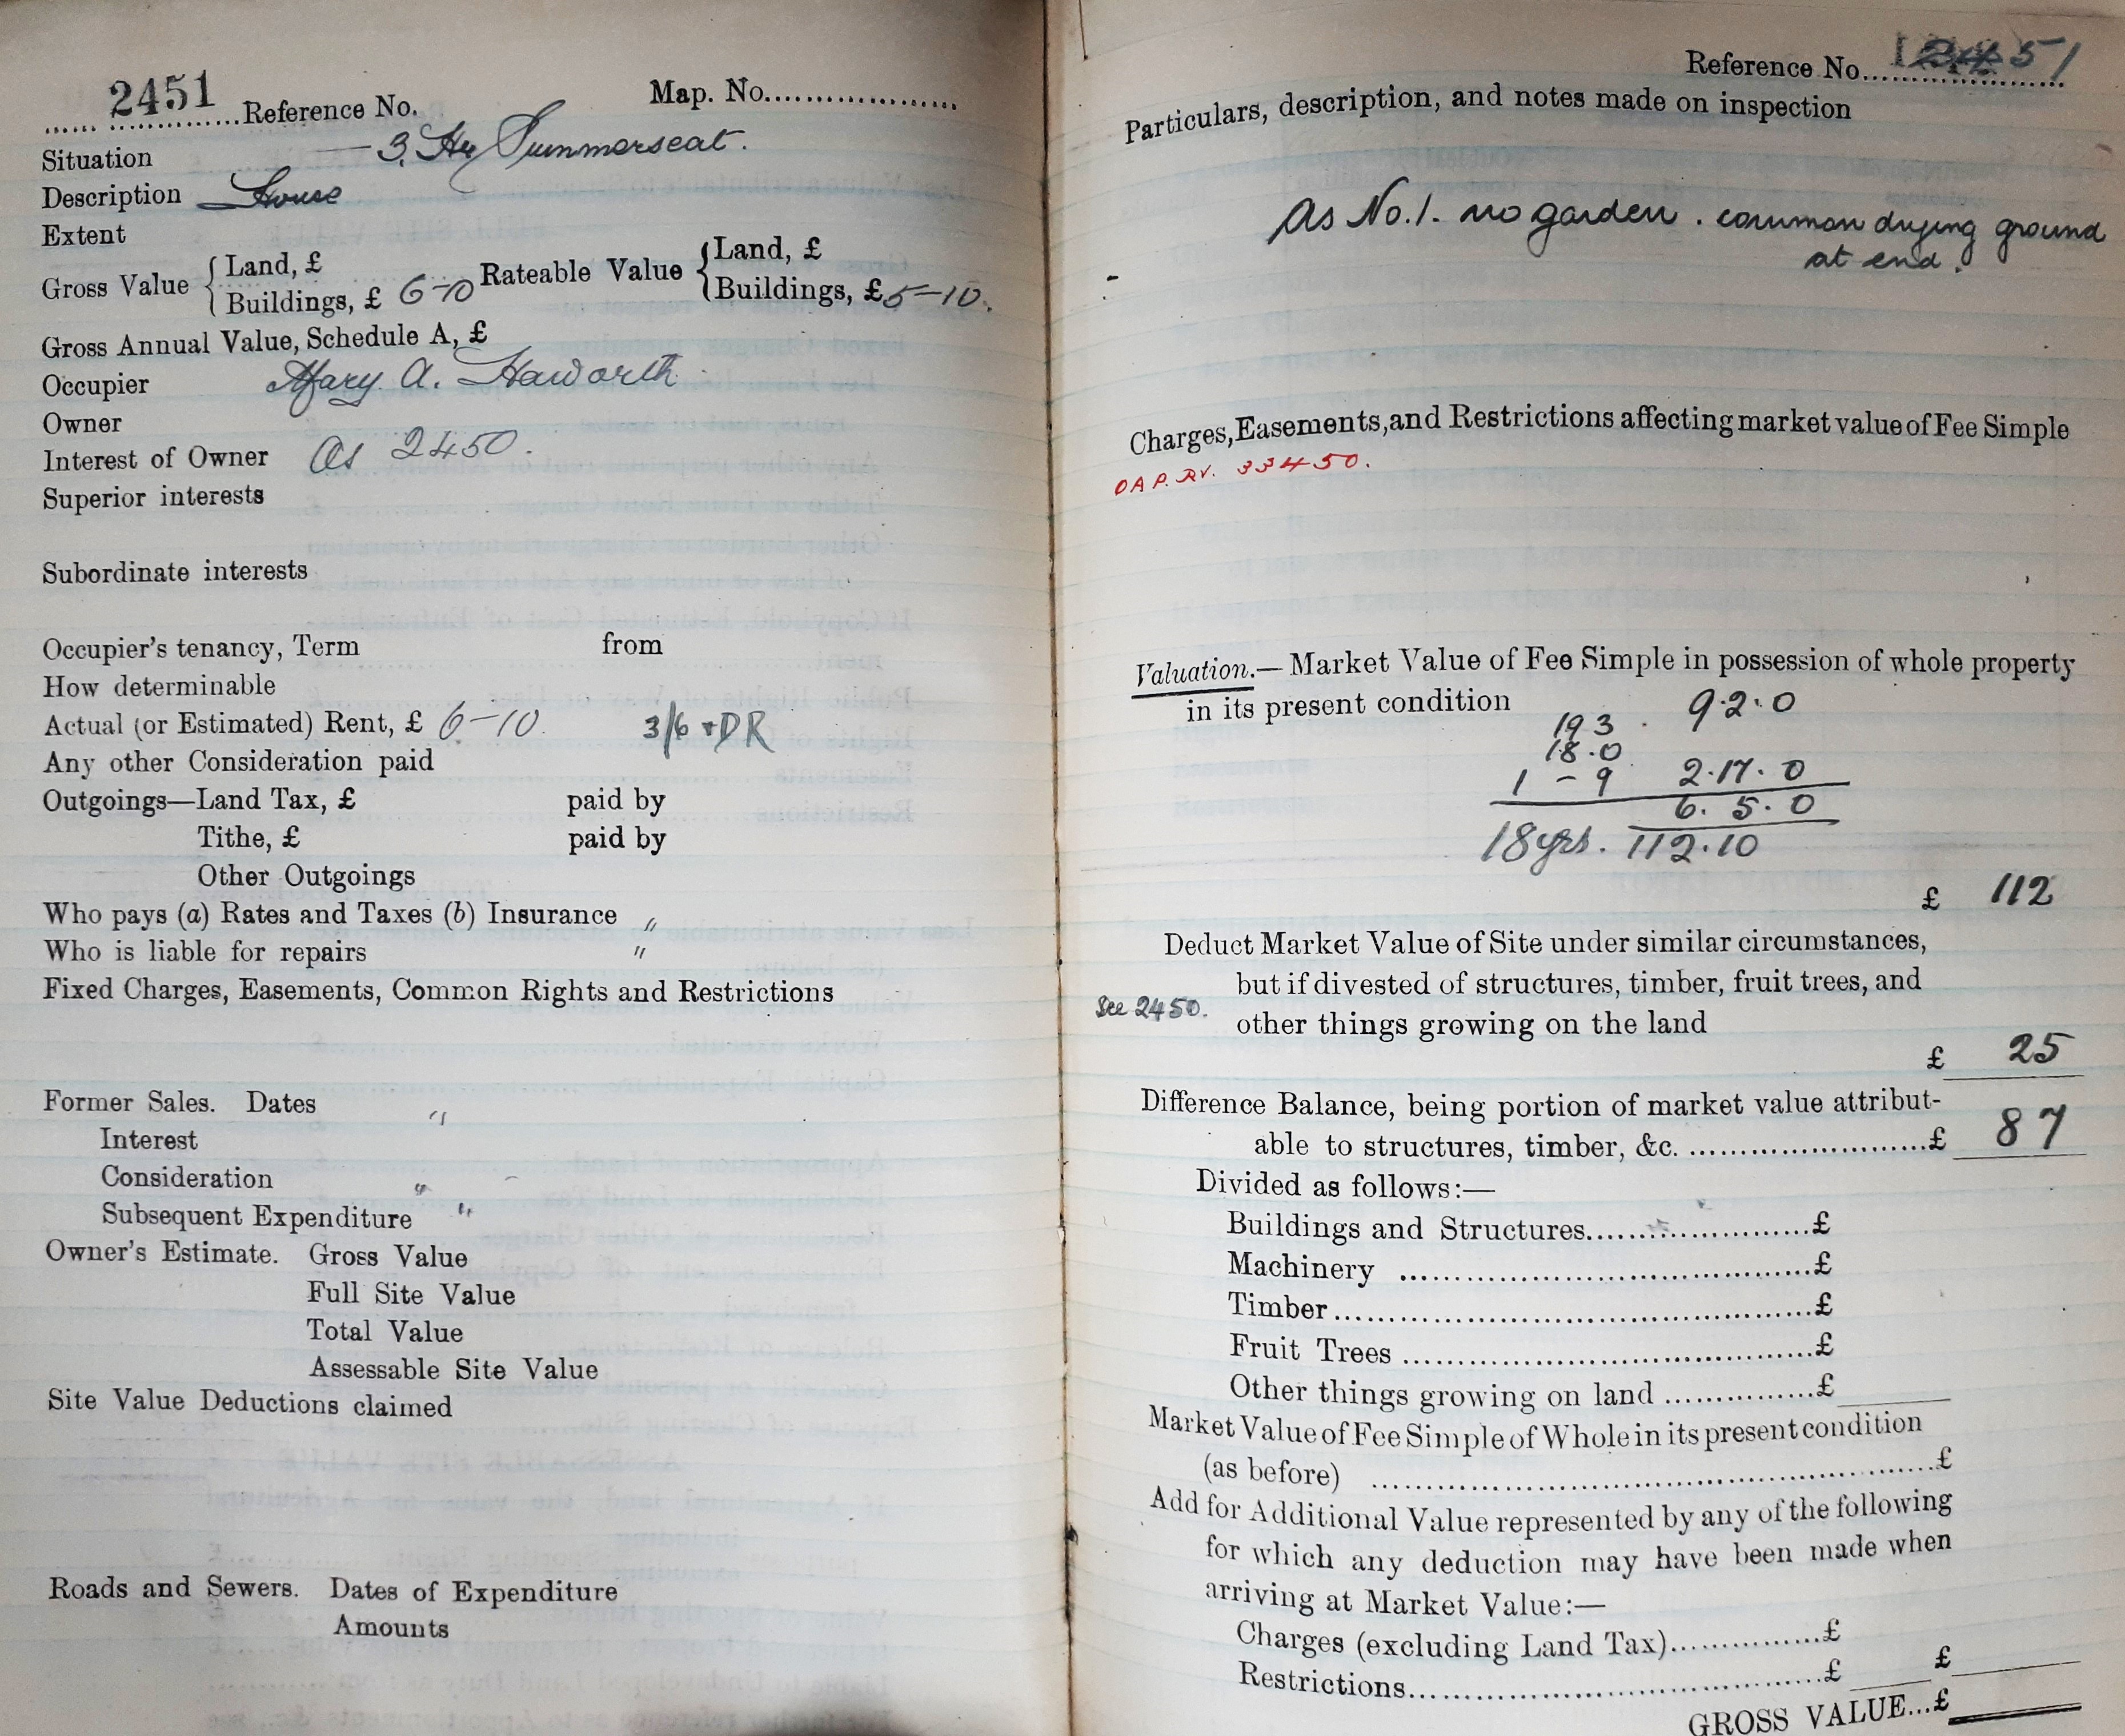 2451 Reference No. Map. No.
Situation — 3, Hr Summerseat.
Description House
Extent
Gross Value { Land, £ Rateable Value { Land, £
Buildings, £ 6-10 Buildings, £ 5-10.
Gross Annual Value, Schedule A, £
Occupier Mary A. Haworth
Owner
Interest of Owner As 2450.
Superior interests
Subordinate interests
Occupier's tenancy, Term from
How determinable
Actual (or Estimated) Rent, £ 6-10. 3/6 + DR
Any other Consideration paid
Outgoings—Land Tax, £ paid by
Tithe, £ paid by
Other Outgoings
Who pays (a) Rates and Taxes (b) Insurance "
Who is liable for repairs "
Fixed Charges, Easements, Common Rights and Restrictions
Former Sales. Dates "
Interest
Consideration "
Subsequent Expenditure "
Owner's Estimate. Gross Value
Full Site Value
Total Value
Assessable Site Value
Site Value Deductions claimed
Roads and Sewers. Dates of Expenditure
Amounts
Reference No. 51
Particulars, description, and notes made on inspection
As No. 1. no garden. common drying ground
at end.
Charges, Easements, and Restrictions affecting market value of Fee Simple
OAP. RV. 33450.
Valuation.— Market Value of Fee Simple in possession of whole property
in its present condition
19 3 . 9.2.0
18.0
1 - 9 2.17.0
6. 5. 0
18 yrs. 112.10
£ 112
Deduct Market Value of Site under similar circumstances,
but if divested of structures, timber, fruit trees, and
See 2450. other things growing on the land
£ 25
Difference Balance, being portion of market value attribut-
able to structures, timber, &c. £ 87
Divided as follows:—
Buildings and Structures £
Machinery £
Timber £
Fruit Trees £
Other things growing on land £
Market Value of Fee Simple of Whole in its present condition
(as before) £
Add for Additional Value represented by any of the following
for which any deduction may have been made when
arriving at Market Value:—
Charges (excluding Land Tax) £
Restrictions £ £
GROSS VALUE...£